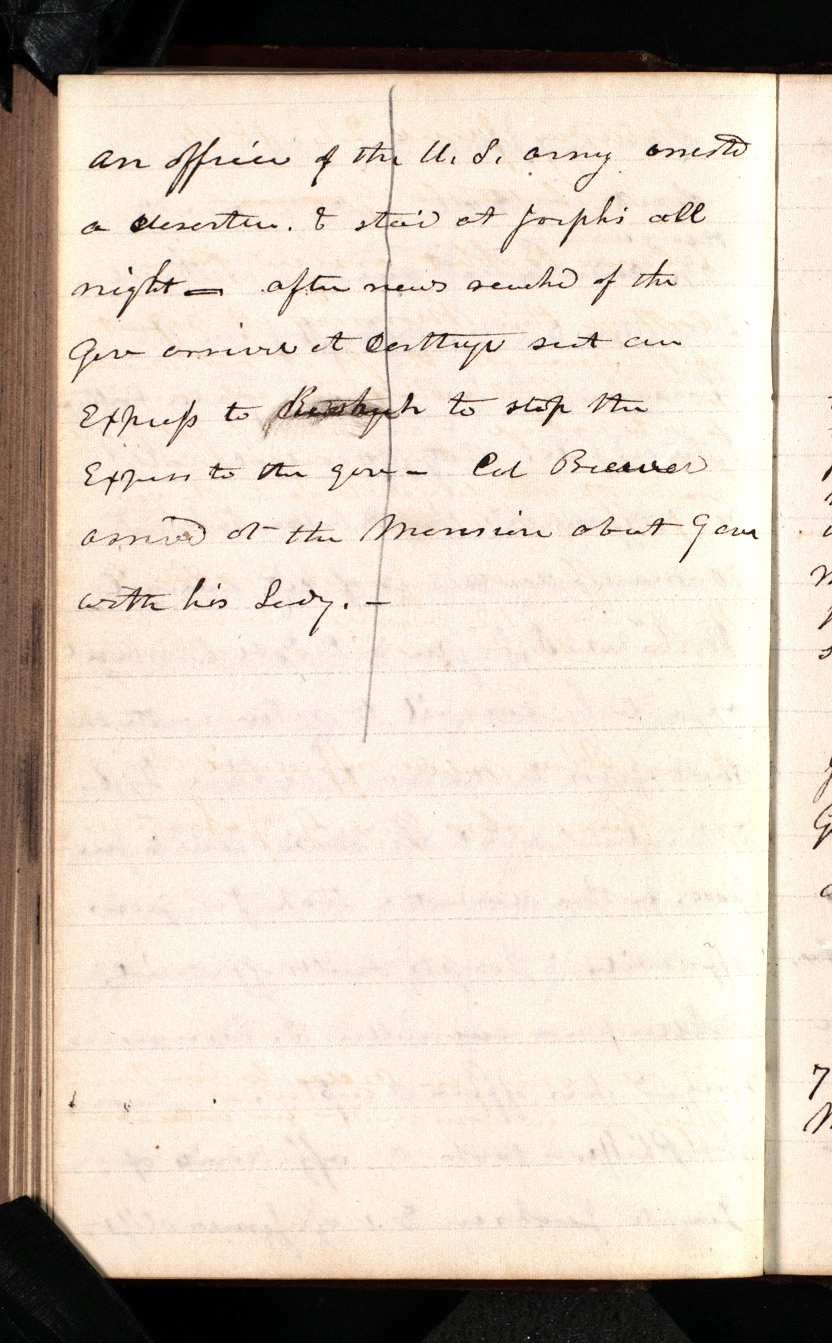 an officer of the U. S. army arrested
a deserter. & staid at Josephs all
night — after news reachd of the
Gov arrival at Carthage sent an
Express to to stop the
Express to the gov — Col Brewer
arrived at the Mansion about 9 am
with his Lady. —